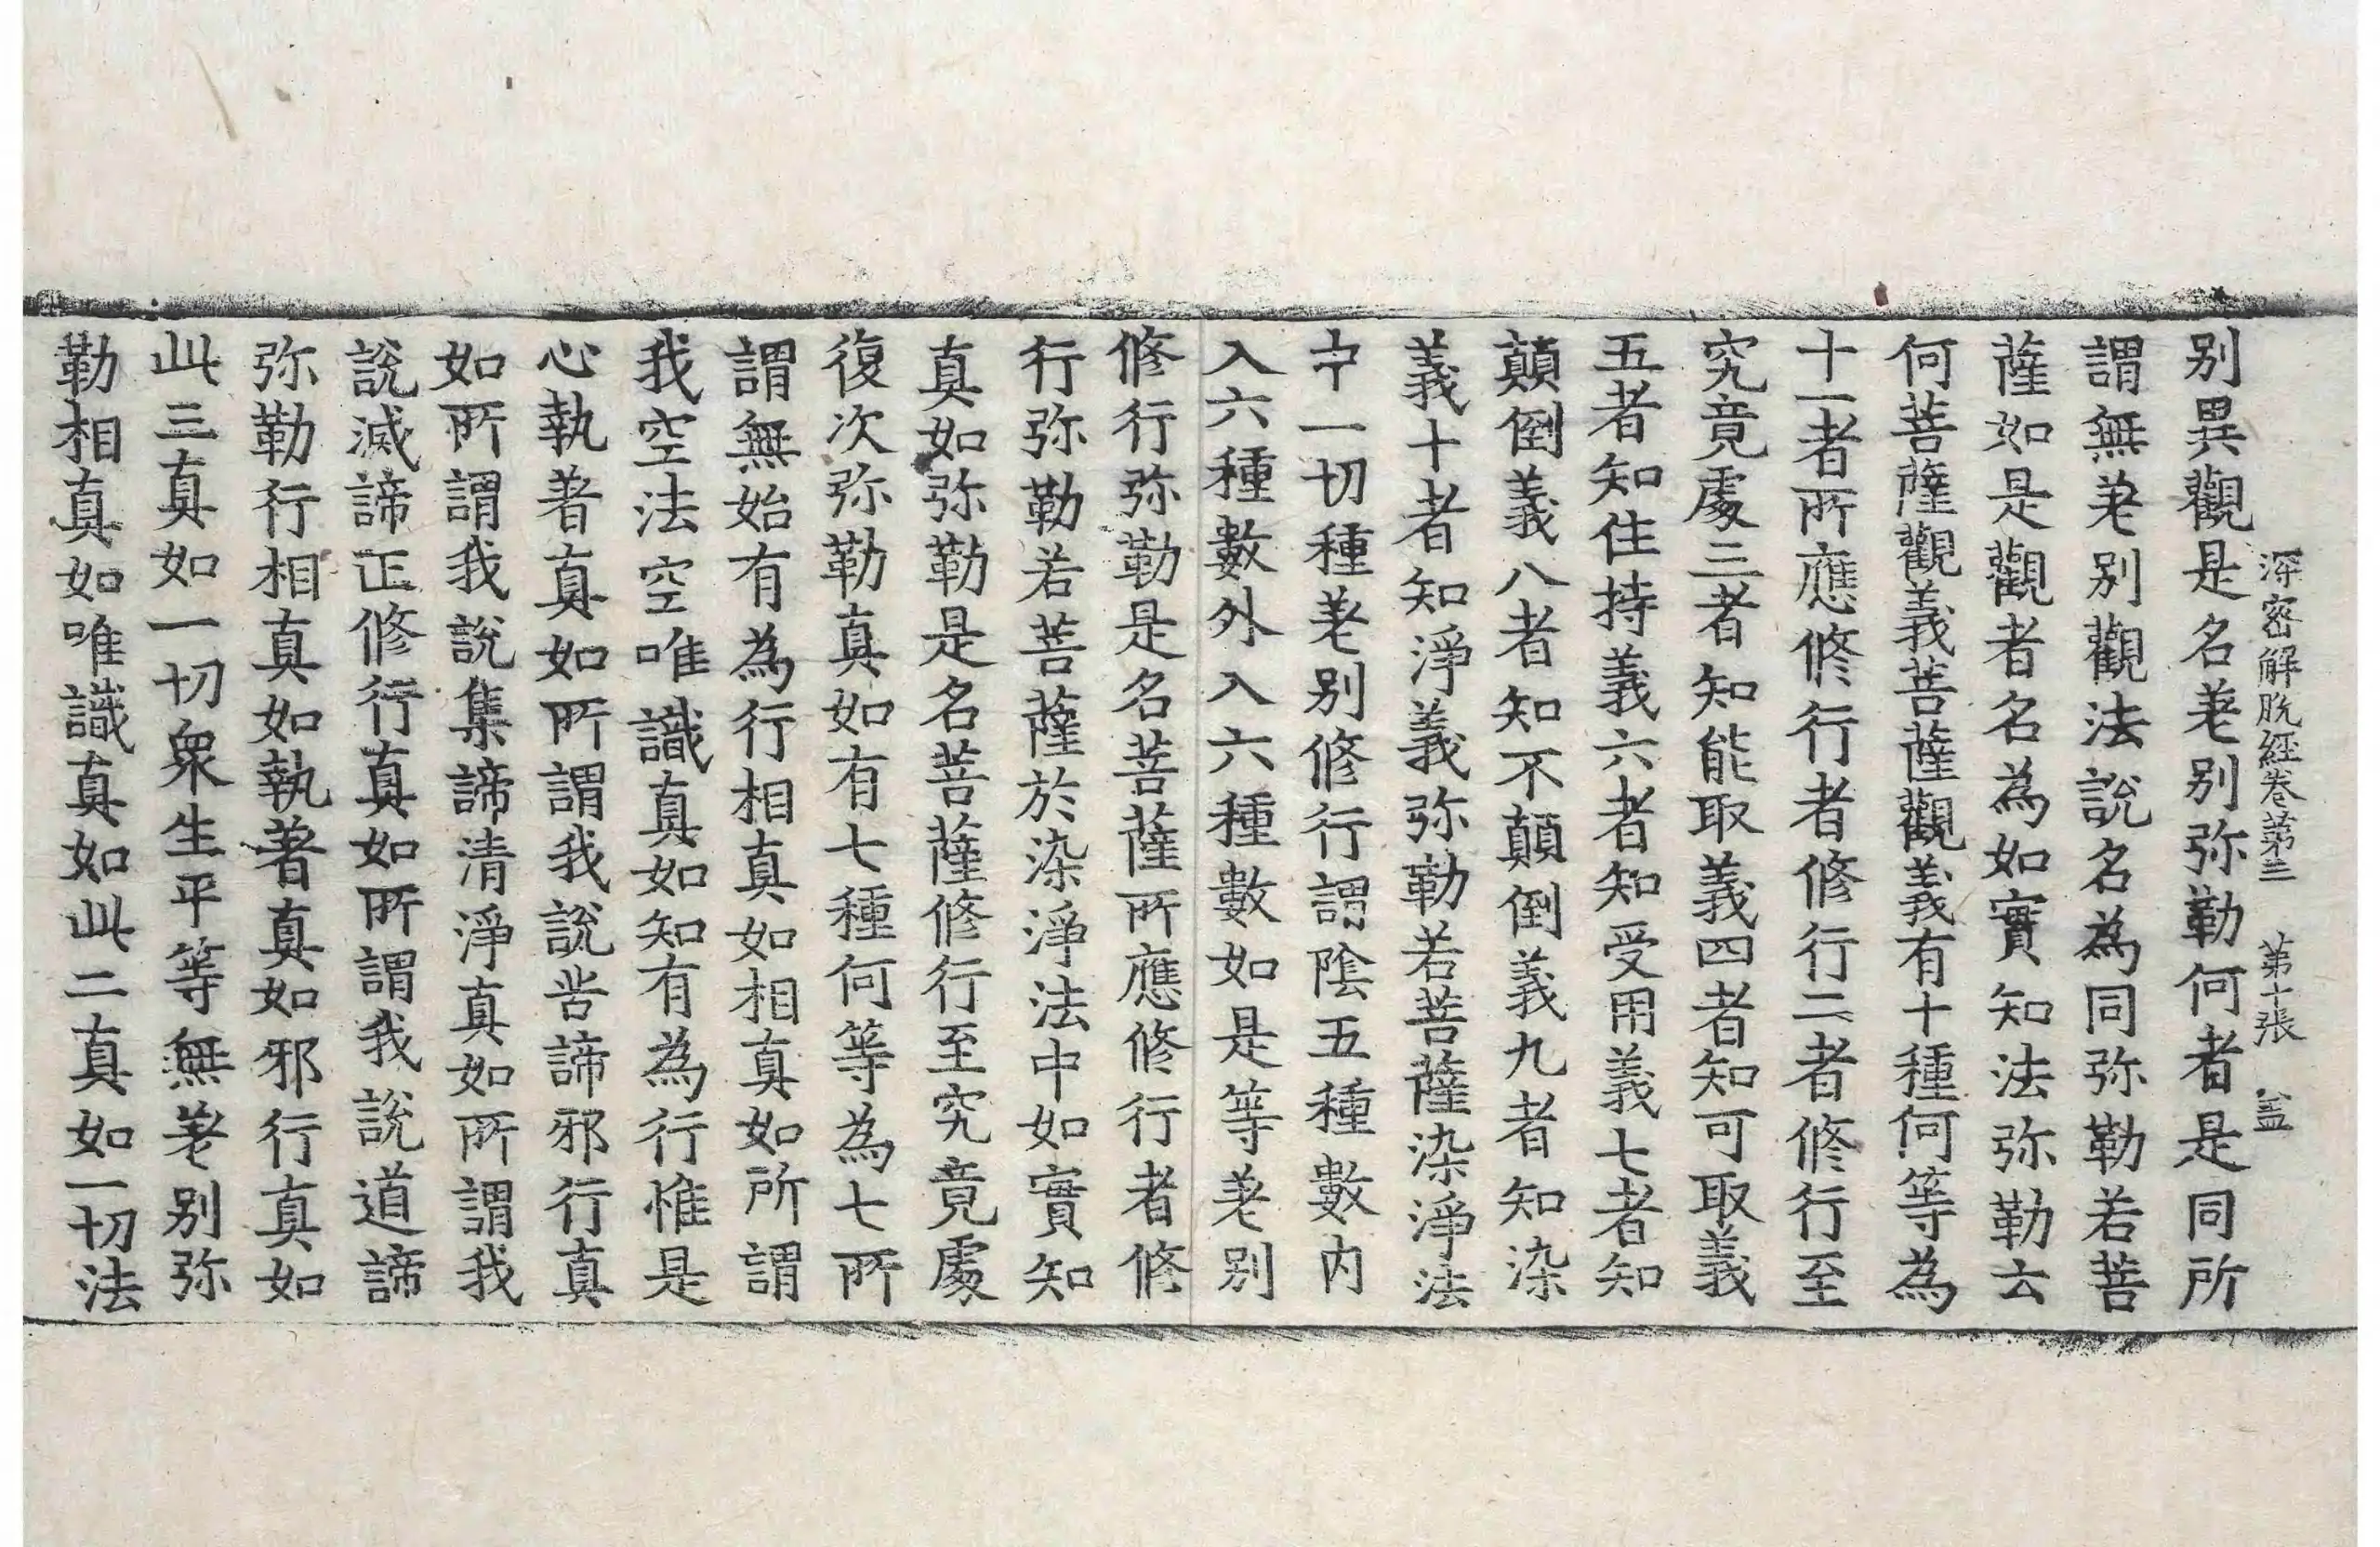 深密解脫經卷第三　第十張　盖
別異觀是名差別弥勒何者是同所
謂無差別觀法說名為同弥勒若菩
薩如是觀者名為如實知法弥勒云
何菩薩觀義菩薩觀義有十種何等為
十一者所應修行者修行二者修行至
究竟處三者知能取義四者知可取義
五者知住持義六者知受用義七者知
顛倒義八者知不顛倒義九者知染
義十者知淨義弥勒若菩薩染淨法
中一切種差別修行謂陰五種數內
入六種數外入六種數如是等差別
修行弥勒是名菩薩所應修行者修
行弥勒若菩薩於染淨法中如實知
真如弥勒是名菩薩修行至究竟處
復次弥勒真如有七種何等為七所
謂無始有為行相真如相真如所謂
我空法空唯識真如知有為行惟是
心執著真如所謂我說苦諦邪行真
如所謂我說集諦清淨真如所謂我
說滅諦正修行真如所謂我說道諦
弥勒行相真如執著真如邪行真如
此三真如一切眾生平等無差別弥
勒相真如唯識真如此二真如一切法